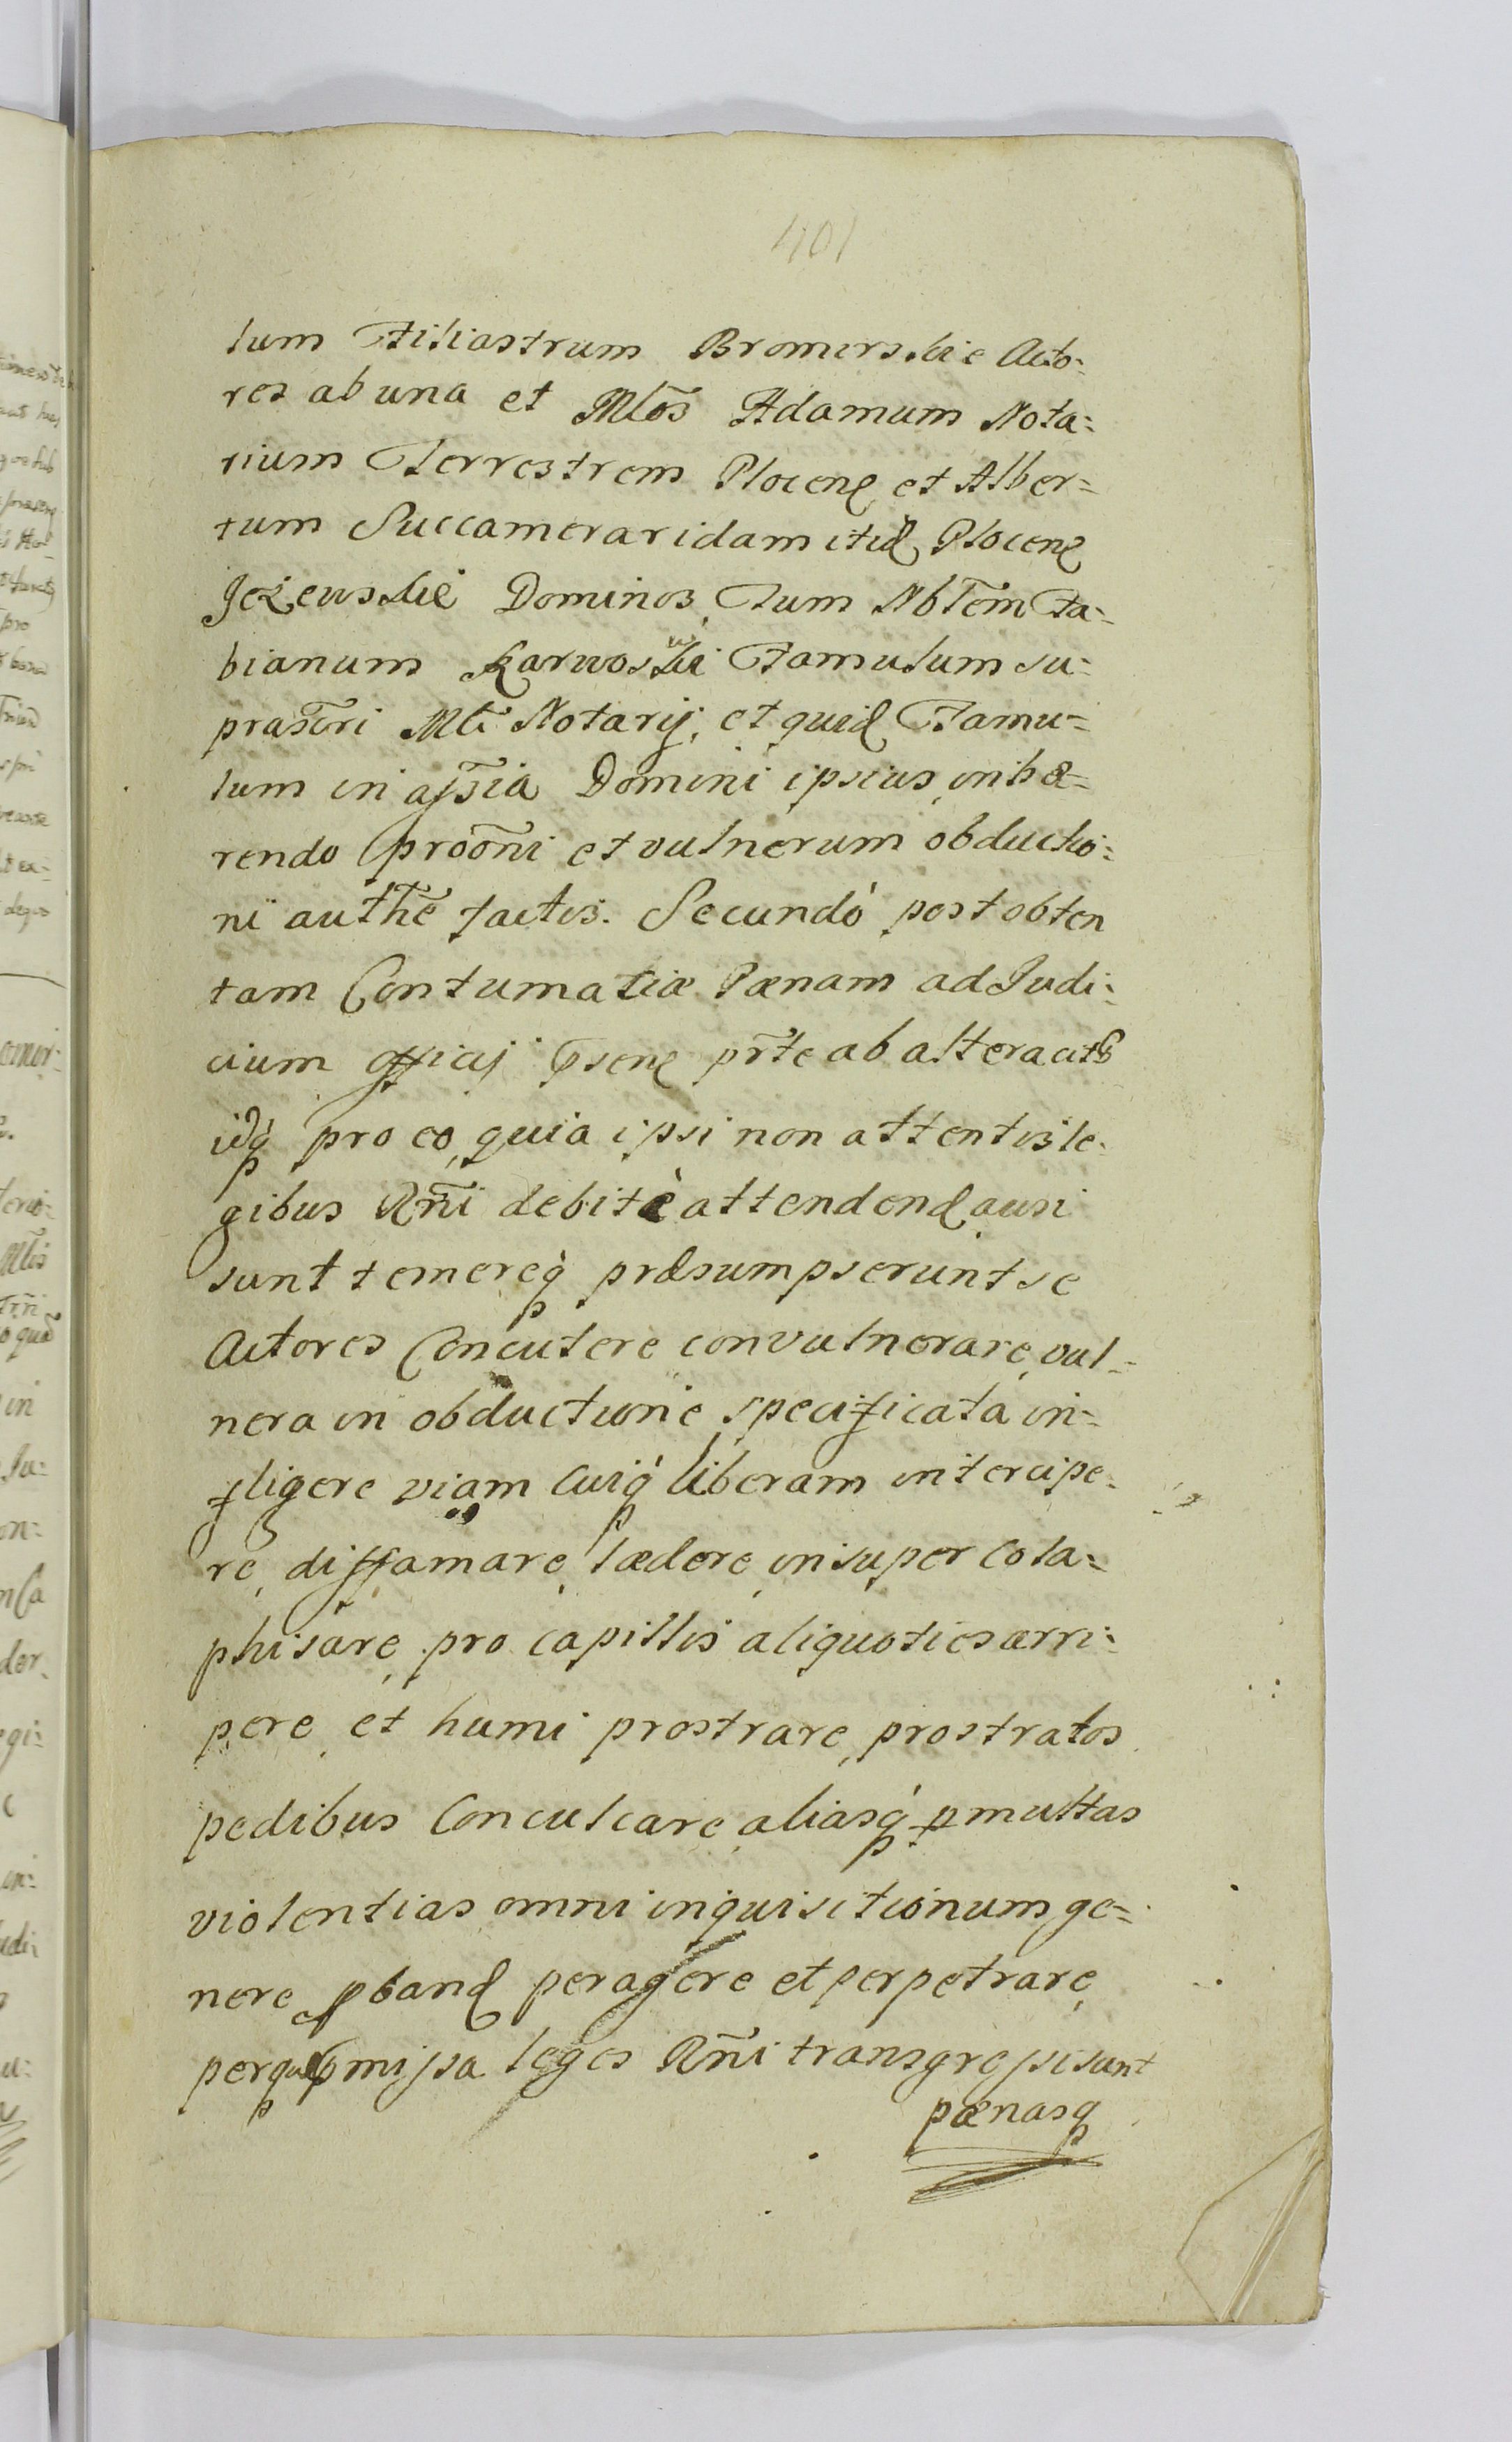 401
lum Filiastrum Bromirskie Acto:
res ab una et Mlõs Adamum Nota:
rium Terrestrem Plocen et Alber=
tum Succameraridam itid Plocen
Jezewskie Dominos, Tum Nblẽm Fa:
bianum Karwoswski Famulum su:
prascri Mlĩ Notarij, et quid Famu=
lum in assĩa Domini ipsius, inhæ=
rendo prõõni et vulnerum obductio:
ni authẽ factis. Secundò post obten
tam Contumatiæ Pænam ad Judi:
cium officij psen pr̃te ab altera citt
idq́ pro eo, quia ipsi non attentis le:
gibus Rñi debitè attendend ausi
sunt temereq́ præsumpserunt se
Actores Concutere convulnerare, vul=
nera in obductione specificata in=
fligere viam Cuiq́ liberam intercipe:
re, diffamare, lædere, insuper Cola=
phisare, pro capillis aliquoties arri:
pere, et humi prostrare, prostratos
pedibus Conculcare, aliasq́ pmultas
violentias omni inquisitionum ge=
nere pband peragere et perpetrare,
perq pmissa leges Rñi transgressi sunt
pænasq